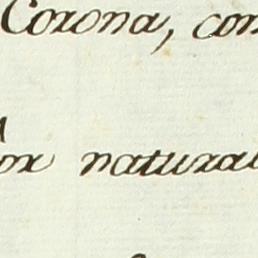 Corona, con
or natural